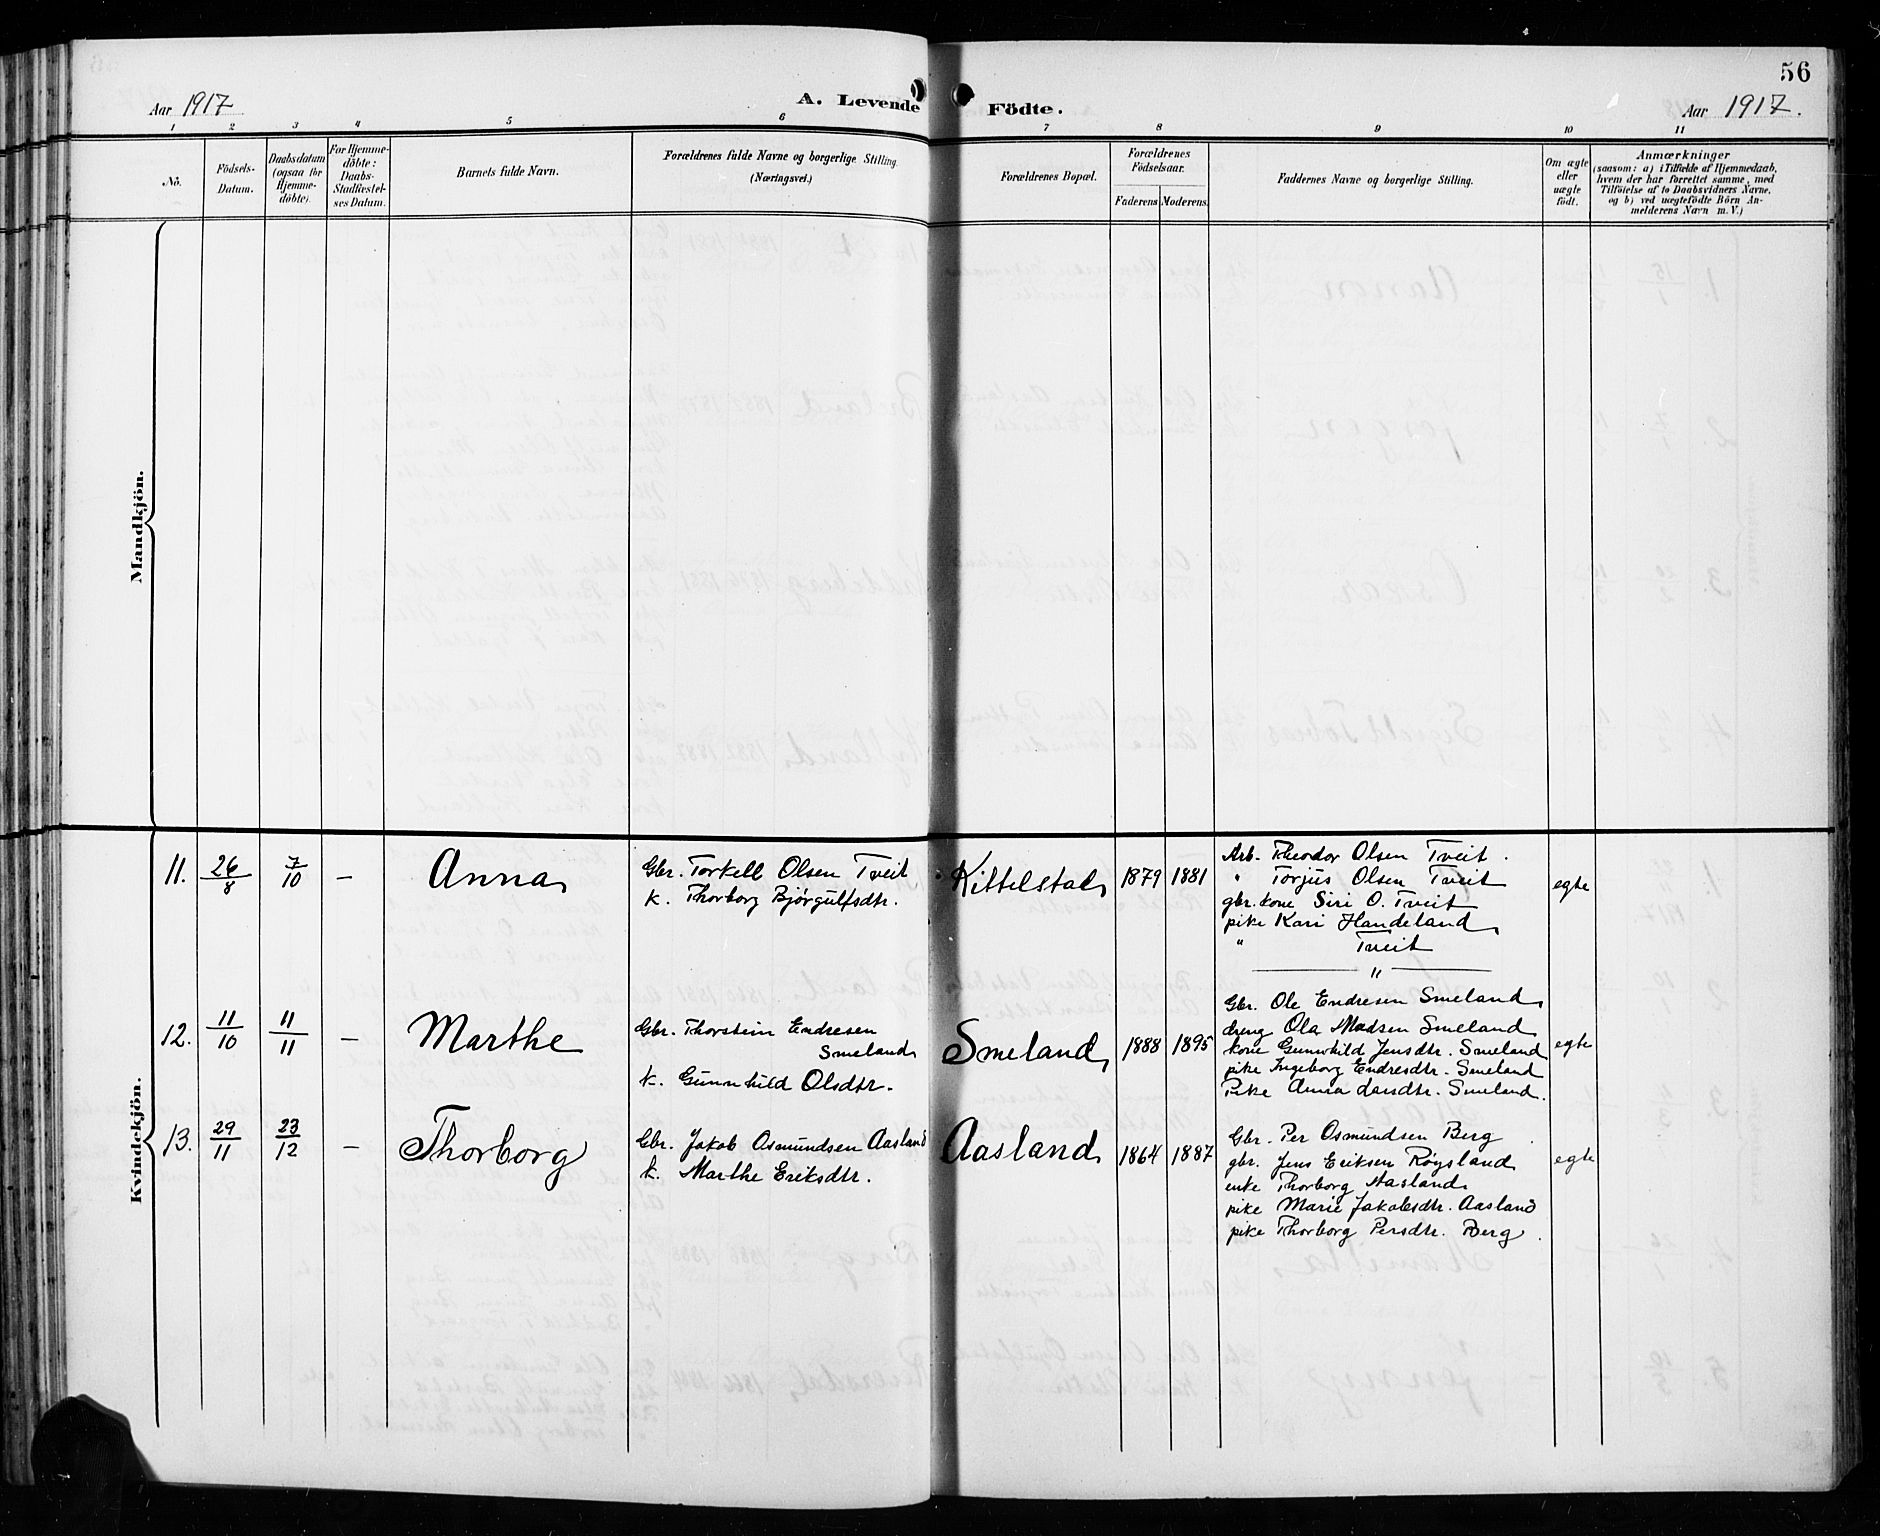 56
Aar 1917 A. Levende Födte. Aar 1917.
1 2 3 4 5 6 7 8 9 10 11
No.
Födsels-
Datum.
Daabsdatum
(ogsaa for
Hjemme-
döbte).
For Hjemme-
döbte:
Daabs-
Stadfæstel-
ses Datum.
Barnets fulde Navn.
Forældrenes fulde Navne og borgerlige Stilling.
(Næringsvei.)
Forældrenes Bopæl.
Forældrenes
Födselsaar.
Faderens Moderens.
Faddernes Navne og borgerlige Stilling.
Om ægte
eller
uægte
födt.
Anmærkninger
(saasom: a) i Tilfælde af Hjemmedaab,
hvem der har forrettet samme, med
Tilföielse af to Daabsvidners Navne,
og b) ved uægtefödte Börn An-
melderens Navn m. V.)
Mandkjön.
Kvindekjön.
11. 26/8 7/10 – Anna
Gbr. Torkell Olsen Tveit
k. Thorborg Bjørgulfsdtr.
Kittelstad 1879 1881
Arb. Theodor Olsen Tveit.
" Torjus Olsen Tveit
gbr. kone Siri O. Tveit
pike Kari Handeland
" Tveit
"
egte
12. 11/10 11/11 – Marthe
Gbr. Thorstein Endresen
Smeland
k. Gunnhild Olsdtr.
Smeland 1888 1895
Gbr. Ole Endresen Smeland
dreng Ola Madsen Smeland
kone Gunnhild Jensdtr. Smeland
pike Ingeborg Endresdtr. Smeland
Pike Anna Larsdtr. Smeland.
egte
13. 29/11 23/12 – Thorborg
Gbr. Jakob Osmundsen Aasland
k. Marthe Eriksdtr.
Aasland 1864 1887
Gbr. Per Osmundsen Berg
gbr. Jens Eriksen Røysland
enke Thorborg Aasland
pike Marie Jakobsdtr. Aasland
pike Thorborg Persdtr. Berg.
egte